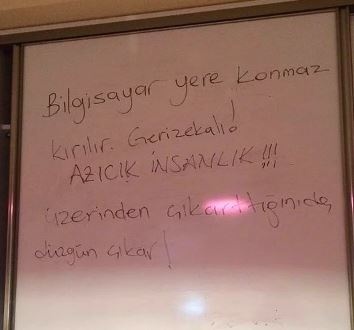 Bilgisayar yere konmaz
kırılır. Gerizekalı!
AZICIK İNSANLIK!!!
üzerinden çıkarttığınıda,
düzgün çıkar!